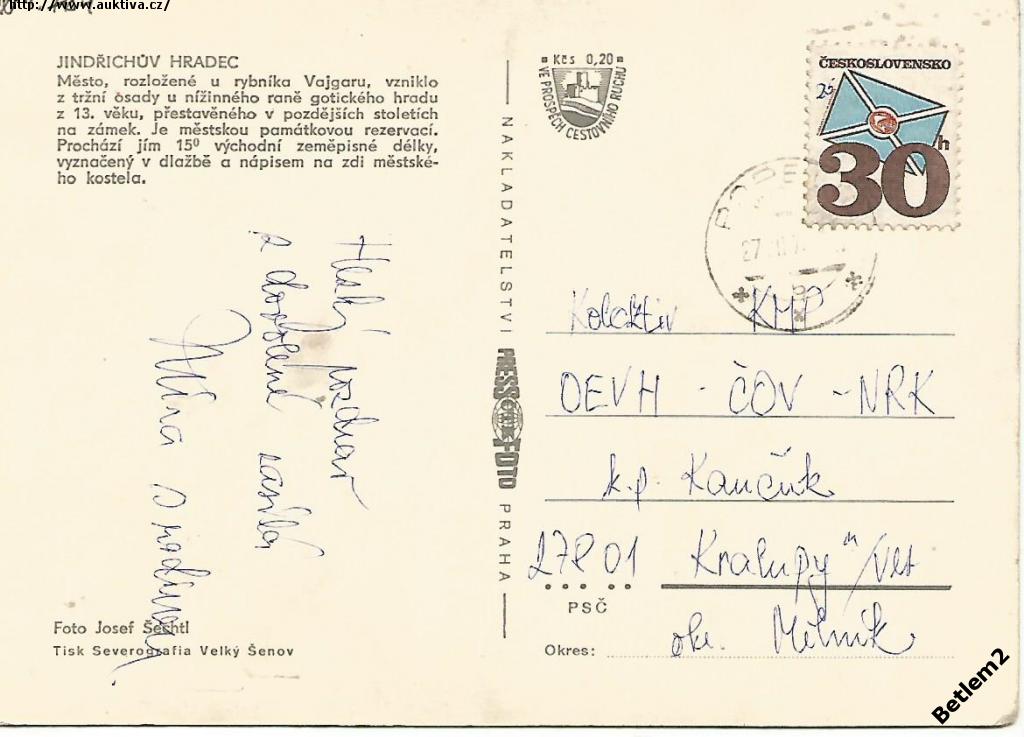 http://www.auktiva.cz/
JINDŘICHŮV HRADEC
Město, rozložené u rybníka Vajgaru, vzniklo
z tržní osady u nížinného raně gotického hradu
z 13. věku, přestavěného v pozdějších stoletích
na zámek. Je městskou památkovou rezervací.
Prochází jím 15⁰ východní zeměpisné délky,
vyznačený v dlažbě a nápisem na zdi městské-
ho kostela.
pozdrav
z dovolené zasílá
Míra s rodinou
Foto Josef Šechtl
Tisk Severografia Velký Šenov
NAKLADATELSTVÍ PRESSFOTO PRAHA
Kčs 0,20
VE PROSPĚCH CESTOVNÍHO RUCHU
ČESKOSLOVENSKO
30h
Kolektiv KMP
OEVH - ČOV - NRK
k.p. Kaučuk
27801 Kralupy n/Vlt
PSČ
Okres: okr. Mělník
Betlem2